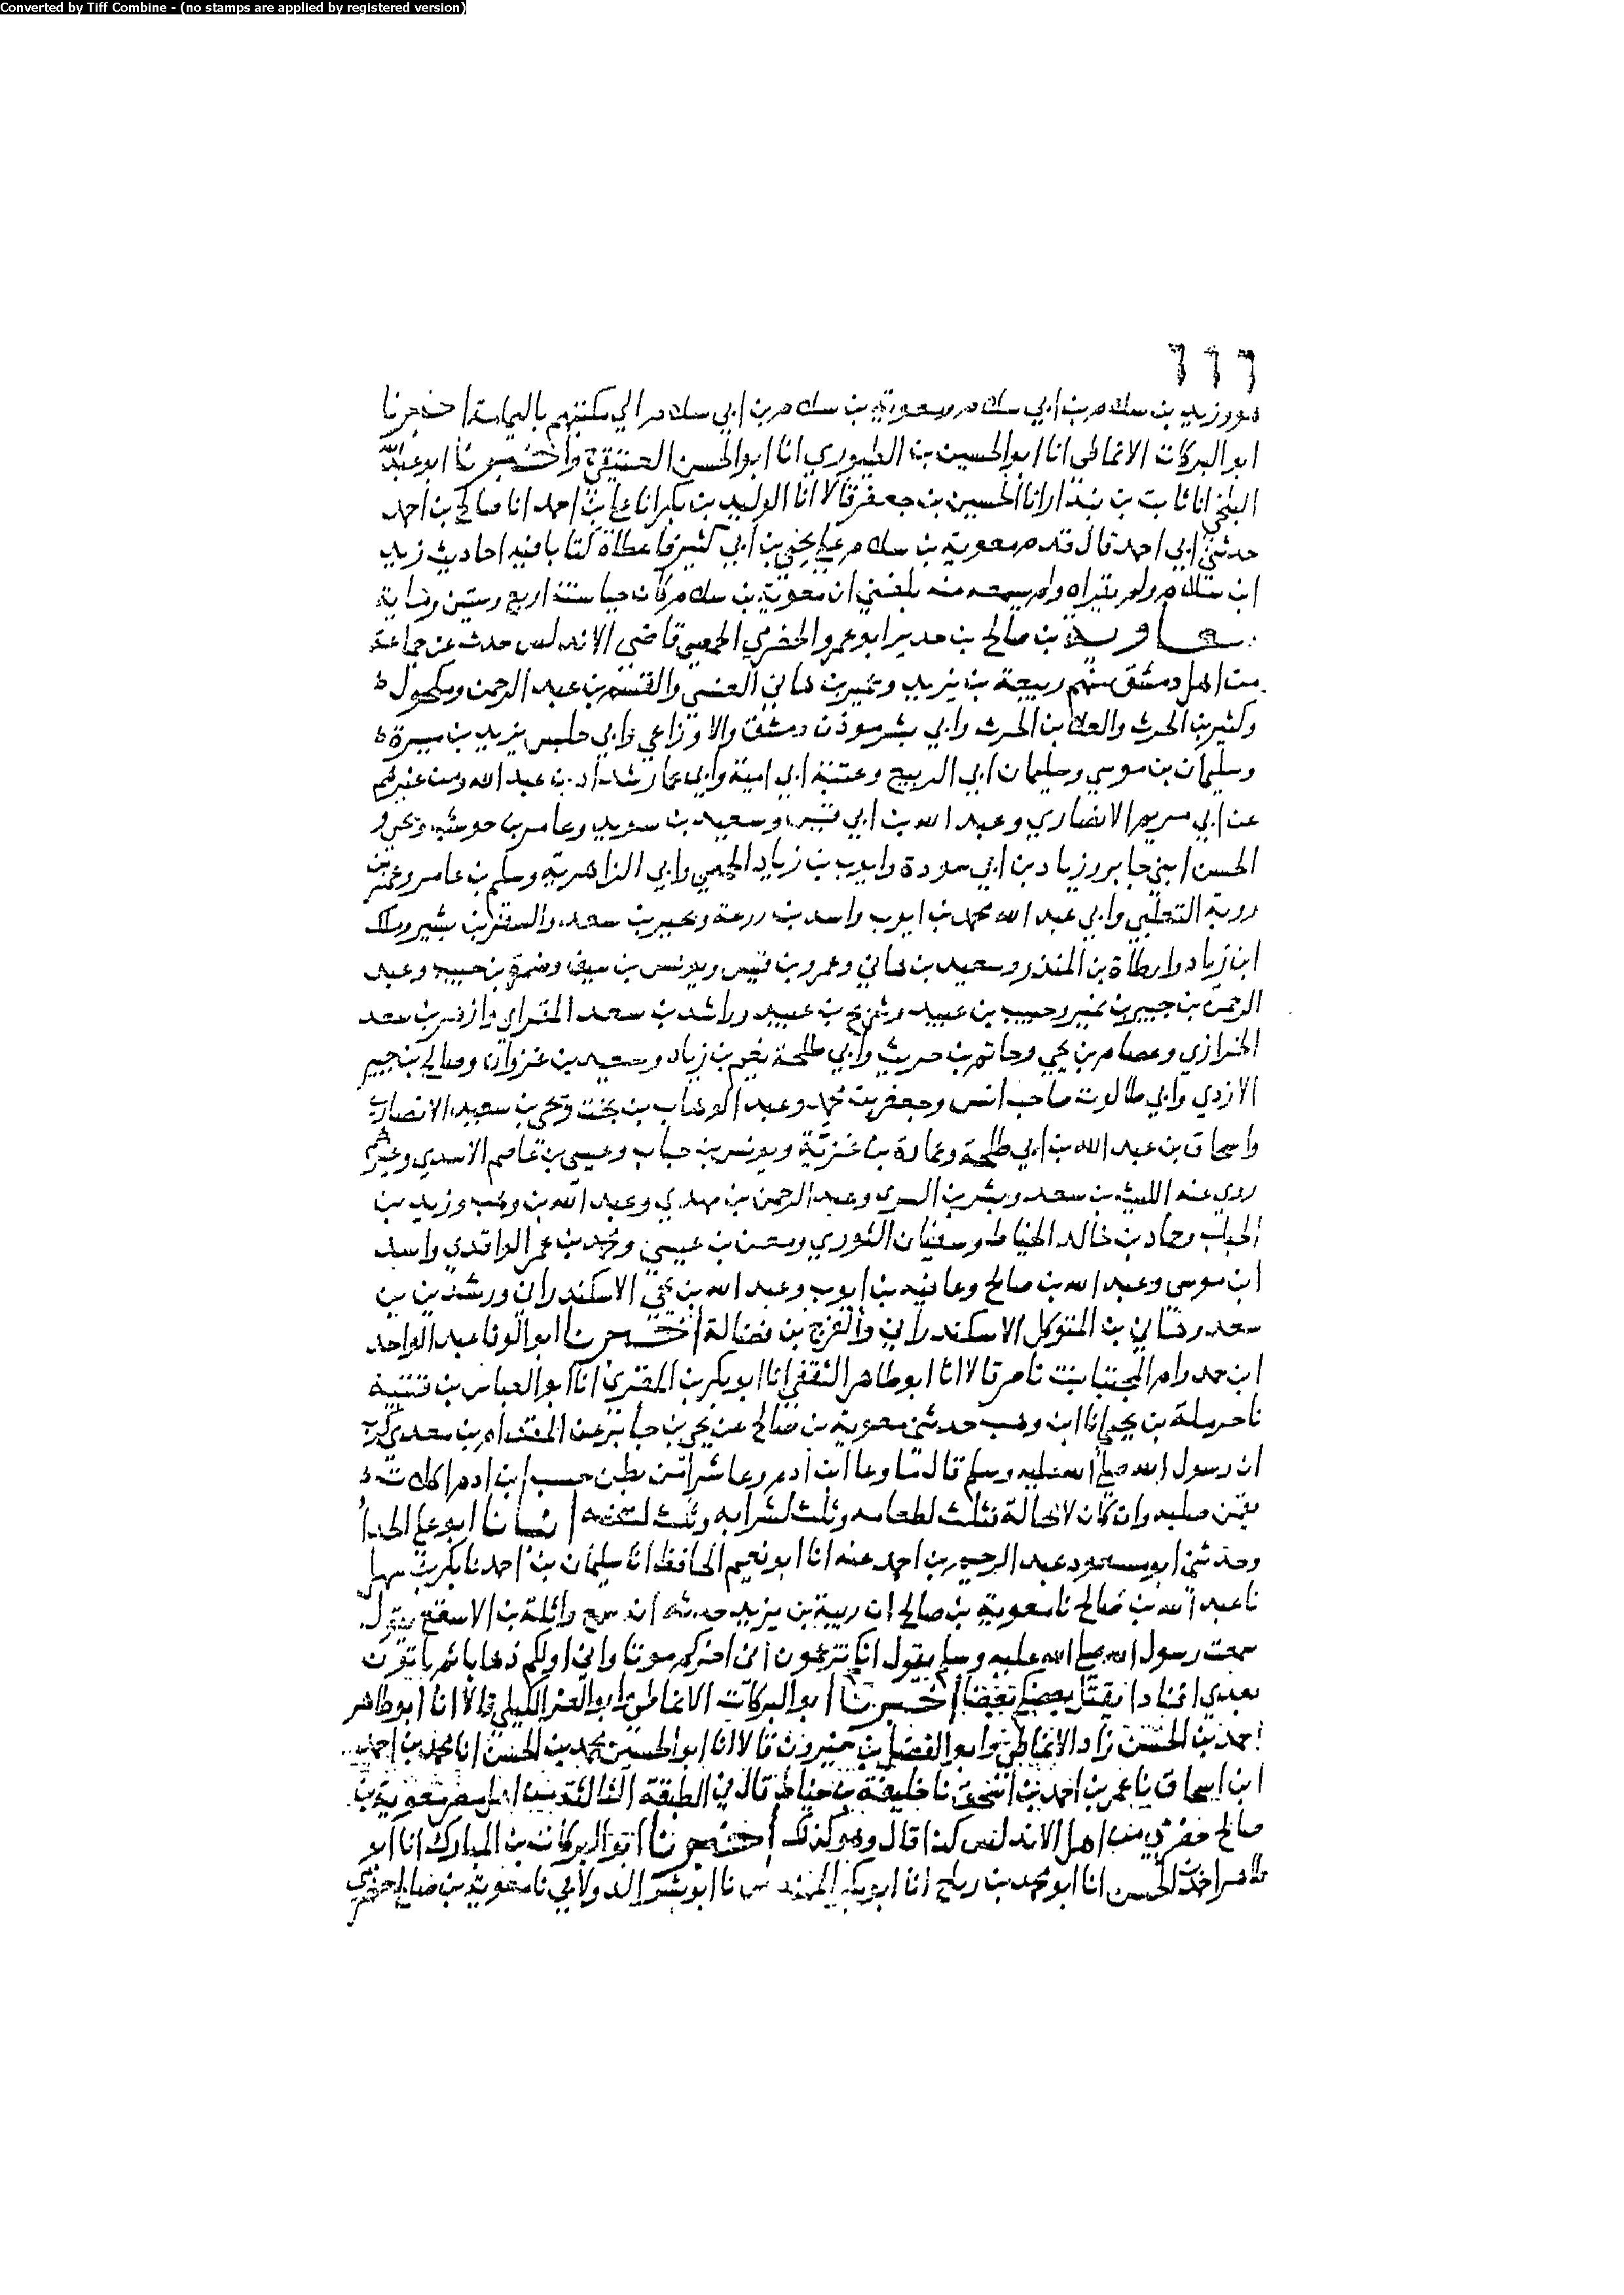 Converted by Tiff Combine - (no stamps are applied by registered version)
٦٦٦
هو وزيد بن سلام بن ابي سلام ومعوية بن سلام بن ابي سلام الي سكنتهم باليمامة اخبرنا
ابو البركات الانماطي انا ابو الحسين بن الطيوري انا ابو الحسن العتيقي واخبرنا ابو عبد الله
البلخي انا ثابت بن بندار انا الحسين بن جعفر قالا انا الوليد بن بكر انا علي بن احمد انا صالح بن احمد
حدثني ابي احمد قال قدم معوية بن سلام علي يحيي بن ابي كثير فاعطاه كتابا فيه احاديث زيد
ابن سلام ولم يقراه ولم يسمعه منه بلغني ان معوية بن سلام كان حيا سنة اربع وستين وماية
معاوية بن صالح بن حدير ابو عمرو الحضرمي الحمصي قاضي الاندلس حدث عن جماعة
من اهل دمشق منهم ربيعة بن يزيد وعمير بن هاني العنسي والقسم بن عبد الرحمن ومكحول
وكثير بن الحرث والعلا بن الحرث وابي بشر موذن دمشق والاوزاعي وابي حلبس يزيد بن ميسرة
وسليمان بن موسي وسليمان ابي الربيع وعتبة ابي امية وابي عمار شداد بن عبد الله ومن غيرهم
عن ابي مريم الانصاري وعبد الله بن ابي قيس وسعيد بن سويد وعامر بن حوشب ويحيي و
الحسن ابني جابر وزياد بن ابي سودة وايوب بن زياد الحمصي وابي الزاهرية وسليم بن عامر وعمر بن
روبة التغلبي وابي عبد الله محمد بن ايوب واسد بن زرعة وبحير بن سعد والسفر بن بشير ومالك
ابن زياد وارطاة بن المنذر وسعيد بن هاني وعمرو بن قيس ويونس بن سيف وضمرة بن حبيب وعبد
الرحمن بن جبير بن نفير وحبيب بن عبيد وشريح بن عبيد وراشد بن سعد المقراي وازهر بن سعد
الحرازي وعصام بن يحيي وحاتم بن حريث وابي طلحة نعيم بن زياد وسعيد بن غزوان وصالح بن جبير
الازدي وابي طالوت صاحب انس وجعفر بن محمد وعبد الوهاب بن بخت ويحيي بن سعيد الانصاري
واسحاق بن عبد الله بن ابي طلحة وعمارة بن غزية ويونس بن خباب وعيسي بن عاصم الاسدي وغيرهم
روي عنه الليث بن سعد وبشر بن السري وعبد الرحمن بن مهدي وعبد الله بن وهب وزيد بن
الحباب وحماد بن خالد الخياط وسفيان الثوري ومعن بن عيسي ومحمد بن عمر الواقدي واسد
ابن موسي وعبد الله بن صالح وعافيه بن ايوب وعبد الله بن يحيي الاسكندراني ورشدين بن
سعد وهاني بن المتوكل الاسكندراني والفرج بن فضالة اخبرنا ابو الوفا عبد الواحد
ابن حمد وام المجتبا بنت ناصر قالا انا ابو طاهر الثقفي انا ابو بكر بن المقري انا ابو العباس بن قتيبة
نا حرملة بن يحيي انا ابن وهب حدثني معوية بن صالح عن يحيي بن جابر عن المقدام بن معدي كرب
ان رسول الله صلي الله عليه وسلم قال ما وعا ابن ادم وعا شرا من بطن حسب ابن ادم اكلات
يقمن صلبه وان كان لا محالة فثلث لطعامه وثلث لشرابه وثلث لنفسه انبانا ابو علي الحداد
وحدثني ابو مسعود عبد الرحيم بن احمد عنه انا ابو نعيم الحافظ انا سليمان بن احمد نا بكر بن سهل
نا عبد الله بن صالح نا معوية بن صالح ان ربيعة بن يزيد حدثه انه سمع واثلة بن الاسقع يقول
سمعت رسول الله صلي الله عليه وسلم يقول انكم تزعمون اني اخركم موتا واني اولكم ذهابا ثم ياتون
بعدي افنادا يقتل بعضكم بعضا اخبرنا ابو البركات الانماطي وابو العز الكيلي قالا انا ابو طاهر
احمد بن الحسن زاد الانماطي وابو الفضل بن خيرون قالا انا ابو الحسين محمد بن الحسن انا محمد بن احمد
ابن اسحاق نا عمر بن احمد بن اسحق نا خليفة بن خياط قال في الطبقة الثالثة من اهل مصر معوية بن
صالح حضرمي من اهل الاندلس كذا قال وهو كذلك اخبرنا ابو البركات بن المبارك انا ابو
طاهر احمد بن الحسن انا ابو محمد بن رباح انا ابو بكر المهندس نا ابو بشر الدولابي نا معوية بن صالح حضرمي